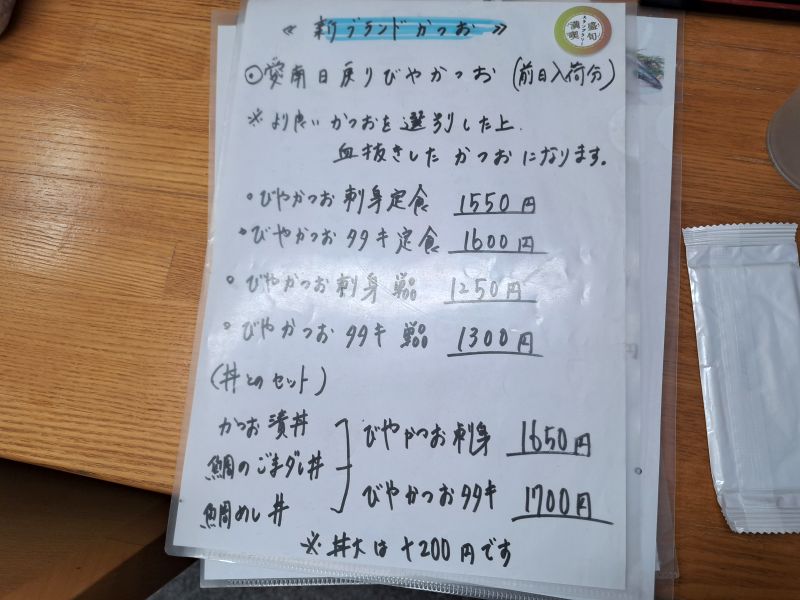 ≪新ブランドかつお≫
盛旬
スタンプラリー
満喫
◎愛南日戻りびやかつお (前日入荷分)
※より良いかつおを選別した上、
血抜きしたかつおになります。
・びやかつお刺身定食 1550円
・びやかつおタタキ定食 1600円
・びやかつお刺身単品 1250円
・びやかつおタタキ単品 1300円
(丼とのセット)
かつお漬丼
鯛のごまダレ丼
鯛めし丼
びやかつお刺身 1650円
びやかつおタタキ 1700円
※丼大は+200円です